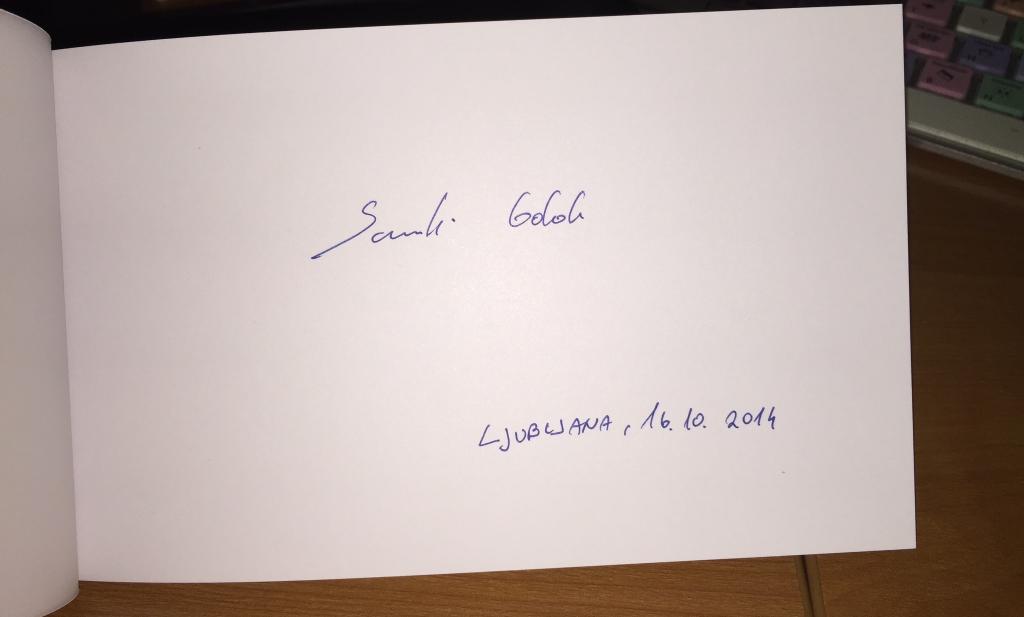 Sanki Goloh
LJUBLJANA, 16.10. 2014